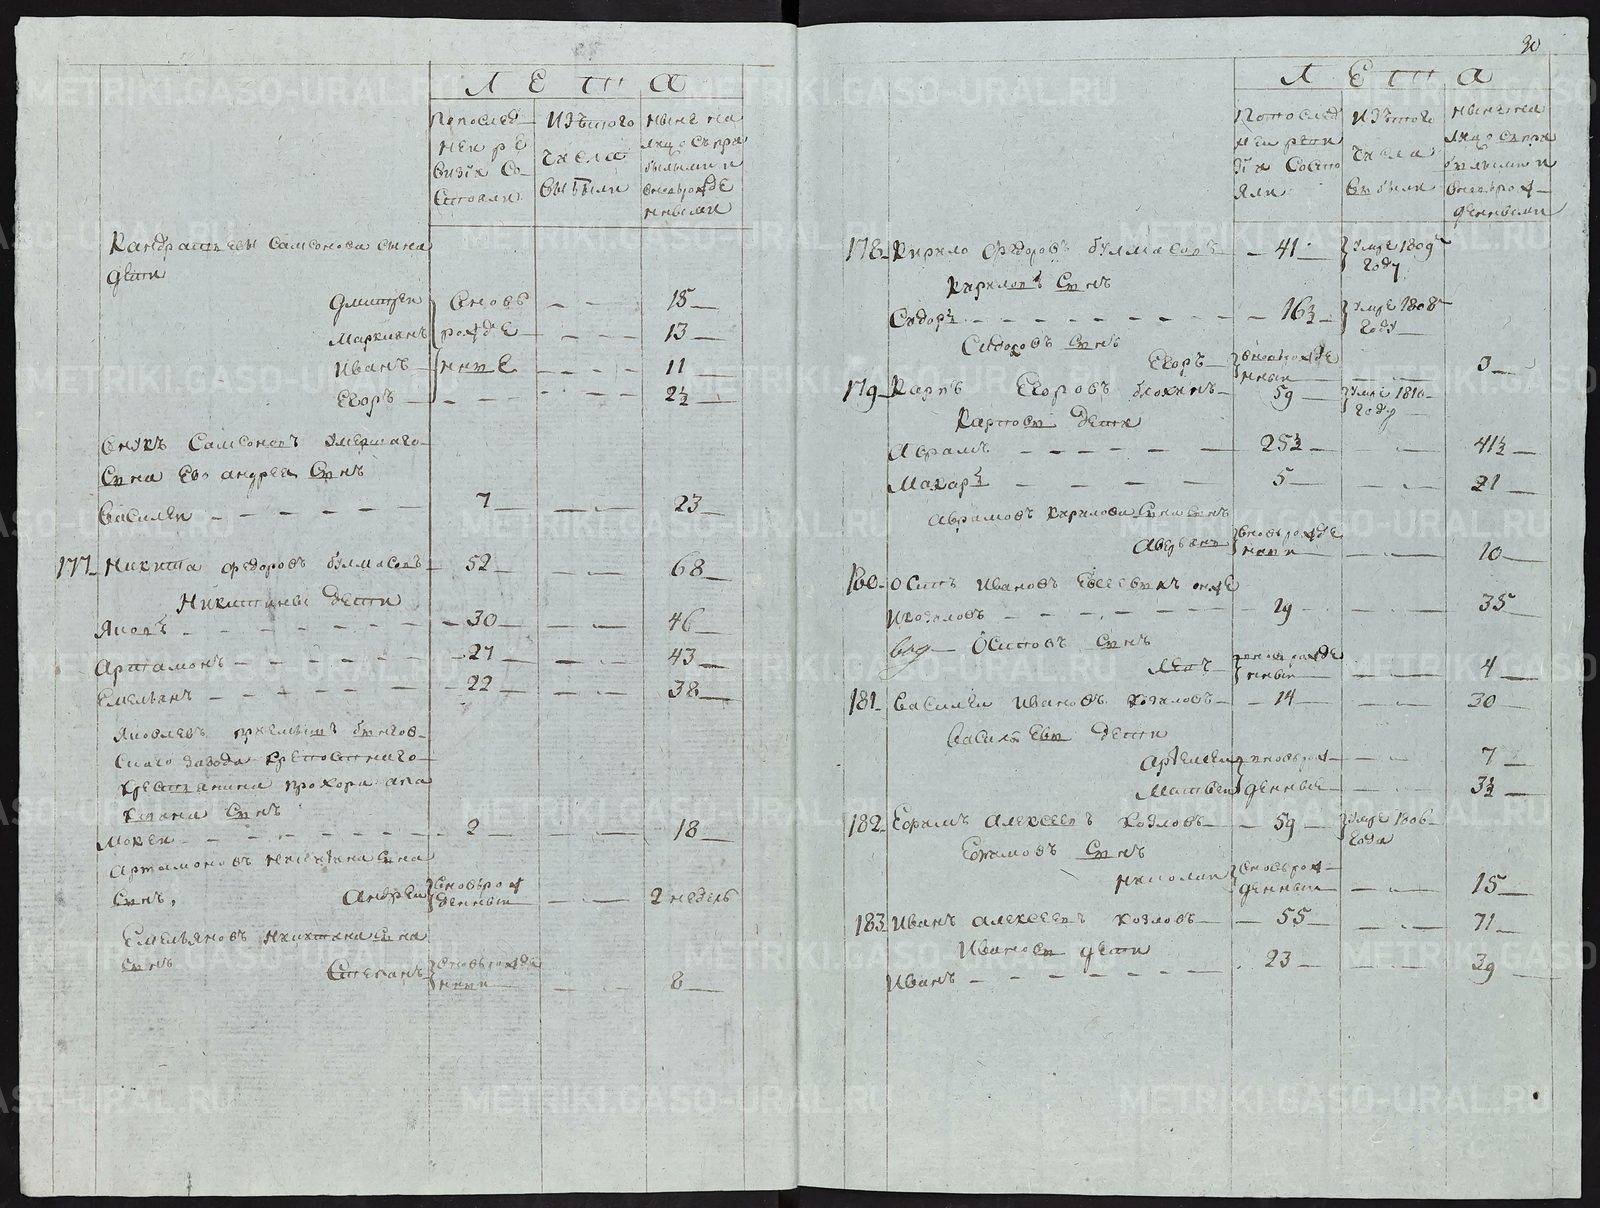 Лета
Попослед
ней ре
визiи со
стояли
Изътого
числа
выбыли
Нынѣ на
лицо съ при
былыми и
вновьрожде
нными
Кандратьевы Самсонова сына
дети
Дмитреи вновь - - 15
Маркианъ рожде - - 13
Иванъ нные - - 11
Егоръ - - 2½
Внукъ Самсоновъ умершаго
сына Ево андрея сынъ
Василеи - - 7 - - 23
177 Никита федоровъ булмасовъ 52 - - 68
Никитины дети
Яковъ - - 30 - - 46
Артамонъ - - 27 - - 43
Емельянъ - - 22 - - 38
Яковлевъ приемышъ
скаго завода крепостнаго
крестьянина прохора
сынъ
Мокеи - - 2 - - 18
Артамоновъ Никитина сына
сынъ, Андреи вновьрож
денныи - - 2 недель
Емельяновъ Никитина сына
сынъ Степанъ вновьрожде
нныи - - 8
30
Лета
Попослед
неи реви
зiи состо
яли
Изътого
числа
выбыли
Нынѣ на
лицо съ при
былыми и
вновьрож
денными
178 Кирило федоровъ булмасовъ - 41 - умре 1809
году
Кириловъ сынъ
Сидоръ - - 16½ - умре 1808
году
Сидоровъ сынъ
Егоръ вновьрожде
нныи - - 3
179 Карпъ Егоровъ блохинъ - 59 умре 1810
году
Карповы дети
Аврамъ - - 25½ - - 41½
Макаръ - - 5 - - 21
Аврамовъ сынъ
Аверьянъ вновьрожде
нныи - - 10
180 Осипъ Ивановъ онже
Икозловъ - - 19 - - 35
Осиповъ сынъ
вновьрожде
нныи - - 4
181 Василеи Ивановъ козловъ - 14 - - 30
Васильевы дети
Артемеи вновьрож - - 7
Матвеи денные - - 3½
182 Ефимъ Алексеевъ козловъ - 59 умре 1806
года
Ефимовъ сынъ
Николаи вновьрож
денныи - - 15
183 Иванъ алексеевъ козловъ - 55 - - 71
Ивановы дети
Иванъ - - 23 - - 39